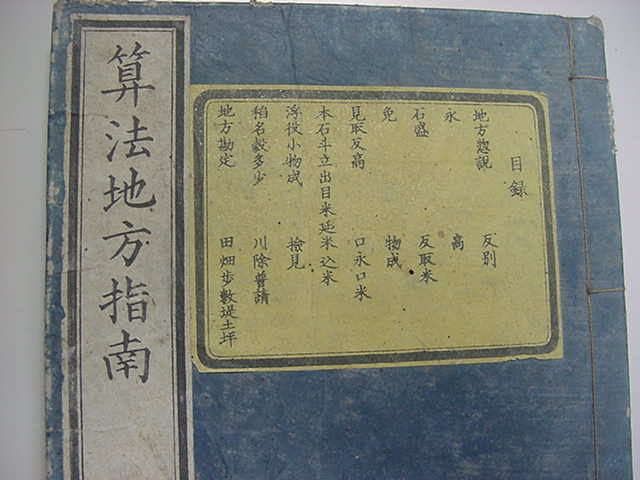 算法地方指南
目録
地方惣説 反別
永 高
石盛 反取米
免 物成
見取反高 口永口米
本石斗立出目米延米込米
浮役小物成 檢見
稻名穀多少 川除普請
地方勘定 田畑歩數堤土坪